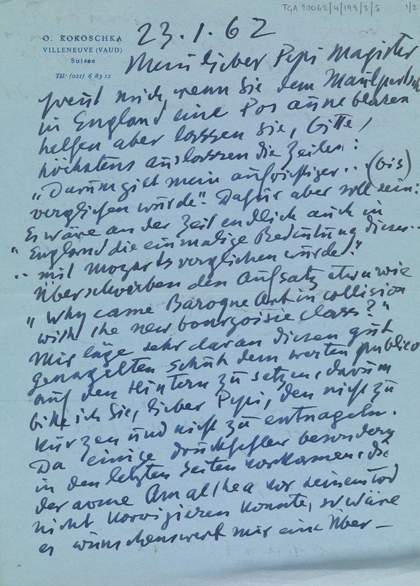 TGA 20062/4/193/2/5 1/2
O. KOKOSCHKA
VILLENEUVE (VAUD)
Suisse
Tél: (021) 6 83 12
23.1.62
Mein lieber Pipi Magister
freut mich, wenn Sie dem Maulpertsch
in England eine Pos aune blasen
helfen aber lassen Sie, bitte,
höchstens auslassen die Zeilen:
„Darum gilt mein aufrichtiger.. (bis)
verglichen würde." Dafür aber soll sein:
„Es wäre an der Zeit endlich auch in
England die einmalige Bedeutung dieser..
.. mit Mozarts verglichen würde."
Überschreiben den Aufsatz etwa wie
„Why came Baroque Art in collision
with the new bourgoisie class?"
Mir läge sehr daran diesen gut
genagelten Schuh dem werten publico
auf den Hintern zu setzen, darum
bitte ich Sie, lieber Pipi, den nicht zu
kürzen und nicht zu entnageln.
Da einige Druckfehler besonders
in den letzten Seiten vorkamen, die
der arme Amalthea vor seinem Tod
nicht korrigieren konnte, so wäre
es wünschenswert mir eine Über-